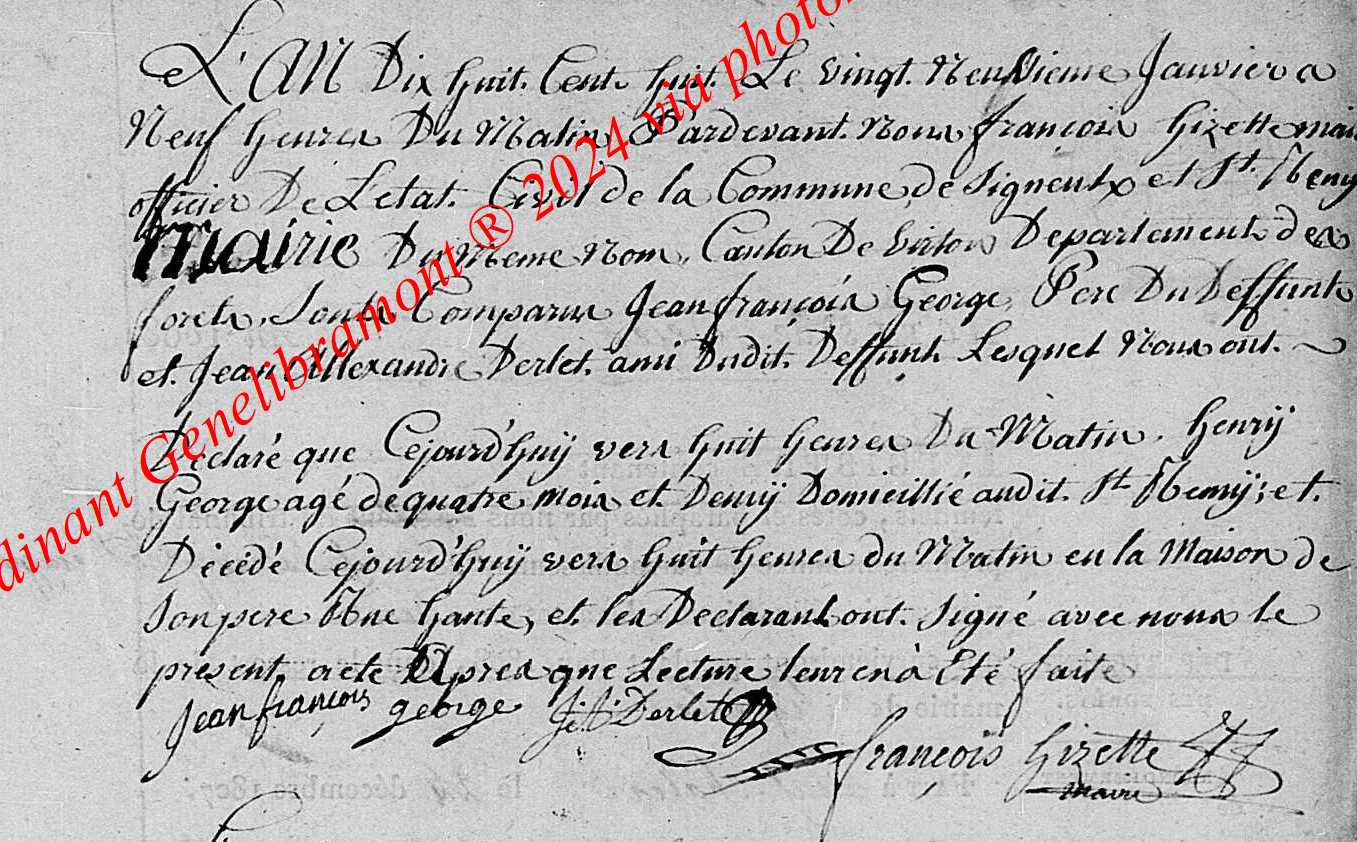 L'AN Dix huit. Cent. huit. Le vingt. Neufvieme Janvier a
Neuf heures Du Matin Pardevant. Nous françois Gizette mai
officier De L'etat. Civil de la Commune, de Signeulx et St. Remy
mairie Du Meme Nom, Canton De Virton Departement des
forets, Sonts Comparus Jean françois George, Pere Du Deffunt
et Jean Allexandre Derlet. ami Dudit. Deffunt Lesquel Nous ont. ~
Declaré que Cejourd'huÿ vers huit heures Du Matin, henrÿ
George agé de quatre mois et. Demÿ Domicillié audit. St Remÿ; et.
Décédé Cejourd'huÿ vers huit heures du Matin en la Maison de
Son pere Rue hante, et. les Declarant ont. Signé avec nous le
present acte Apres que Lecture leur en à Eté faite
Jean françois george J: A: Derlet
françois Gizette
maire
dinant Genelibramont ® 2024 via photo